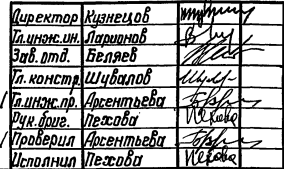 Директор Кузнецов
Гл.инж.ин. Ларионов
Зав.отд. Беляев
Гл.констр. Шувалов
Гл.инж.пр. Арсентьева
Рук.бриг. Пехова
Проверил Арсентьева
Исполнил Пехова